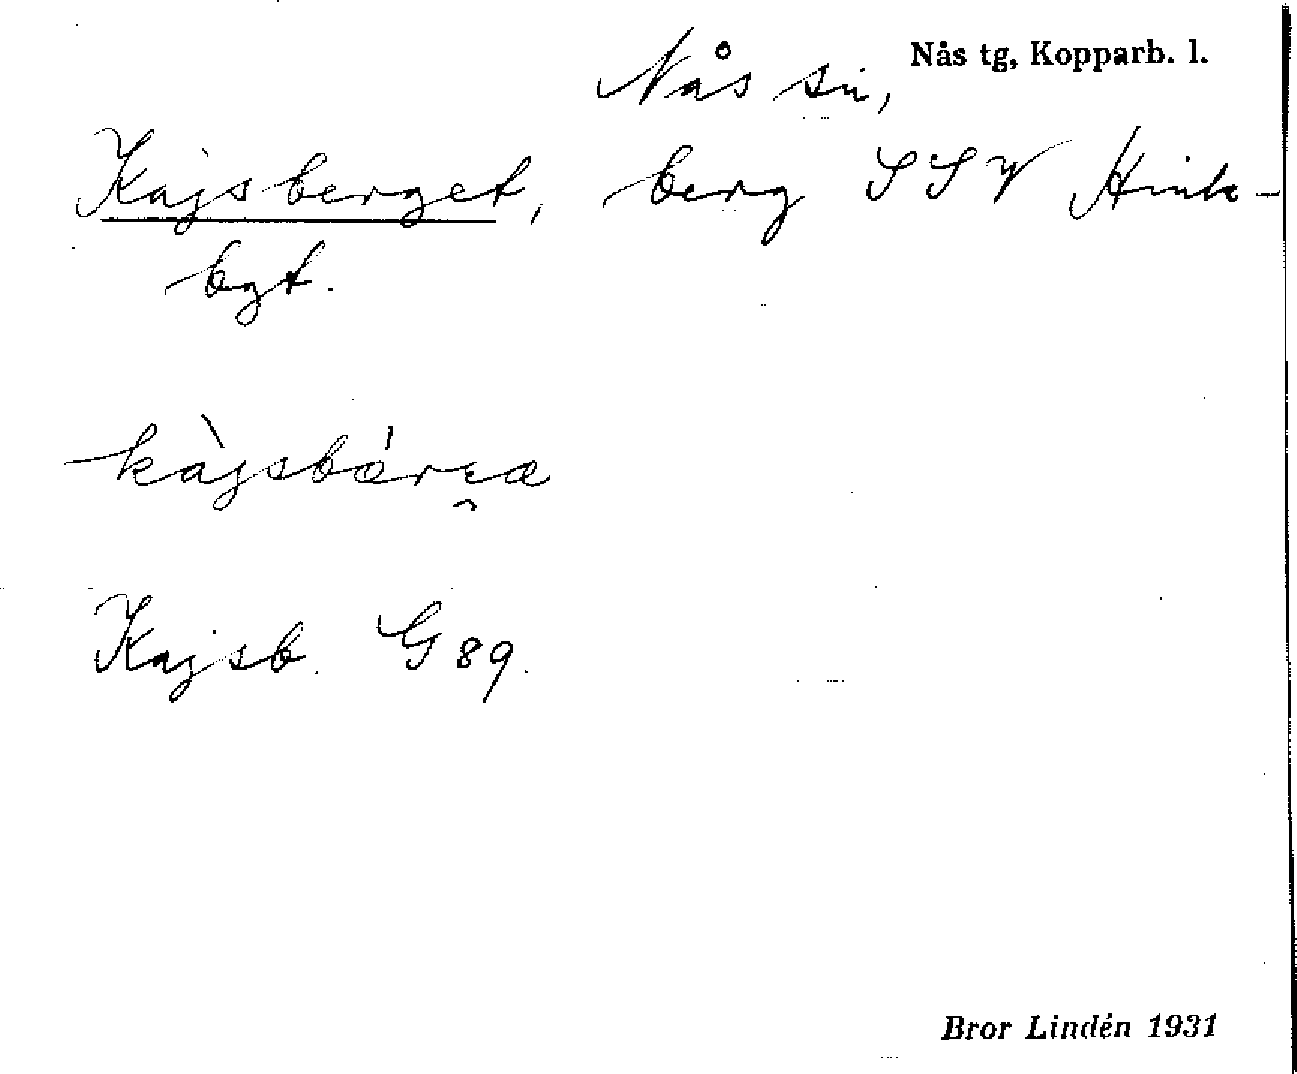 Nås sn, Nås tg, Kopparb. l.
Kajsberget, berg SSV Hink-
bgt.
kàjsbá̈rɛa
Kajsb. G 89.
Bror Lindén 1931